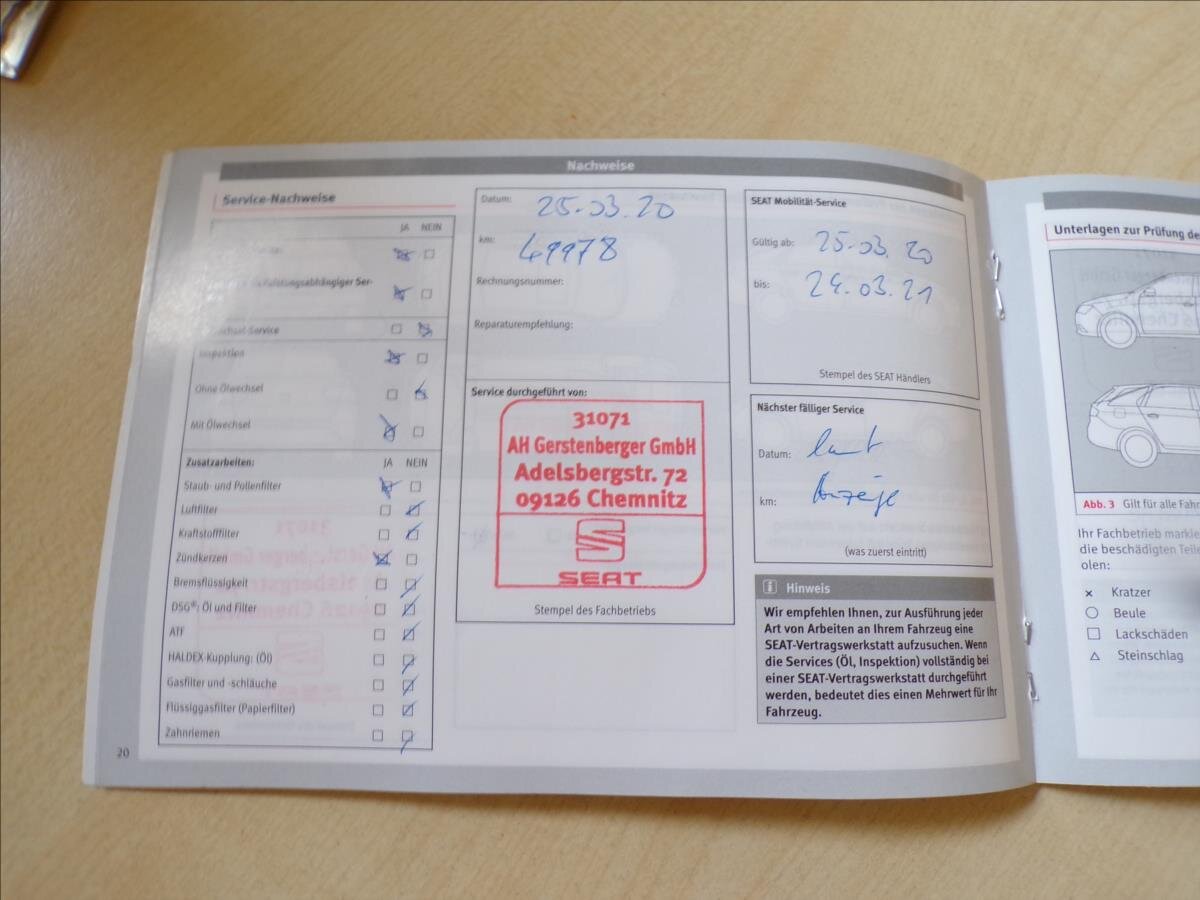 Nachweise
Service-Nachweise
JA NEIN
Inspektion
Ohne Ölwechsel
Mit Ölwechsel
Zusatzarbeiten: JA NEIN
Staub- und Pollenfilter
Luftfilter
Kraftstofffilter
Zündkerzen
Bremsflüssigkeit
DSG®: Öl und Filter
ATF
HALDEX-Kupplung: (Öl)
Gasfilter und -schläuche
Flüssiggasfilter (Papierfilter)
Zahnriemen
20
Datum: 25.03.20
km: 49978
Rechnungsnummer:
Reparaturempfehlung:
Service durchgeführt von:
31071
AH Gerstenberger GmbH
Adelsbergstr. 72
09126 Chemnitz
SEAT
Stempel des Fachbetriebs
SEAT Mobilität-Service
Gültig ab: 25.03.20
bis: 24.03.21
Stempel des SEAT Händlers
Nächster fälliger Service
Datum: laut
km: Anzeige
(was zuerst eintritt)
i Hinweis
Wir empfehlen Ihnen, zur Ausführung jeder
Art von Arbeiten an Ihrem Fahrzeug eine
SEAT-Vertragswerkstatt aufzusuchen. Wenn
die Services (Öl, Inspektion) vollständig bei
einer SEAT-Vertragswerkstatt durchgeführt
werden, bedeutet dies einen Mehrwert für Ihr
Fahrzeug.
Unterlagen zur Prüfung de
Abb. 3 Gilt für alle Fahr
Ihr Fachbetrieb markie
die beschädigten Teile
olen:
Kratzer
Beule
Lackschäden
Steinschlag